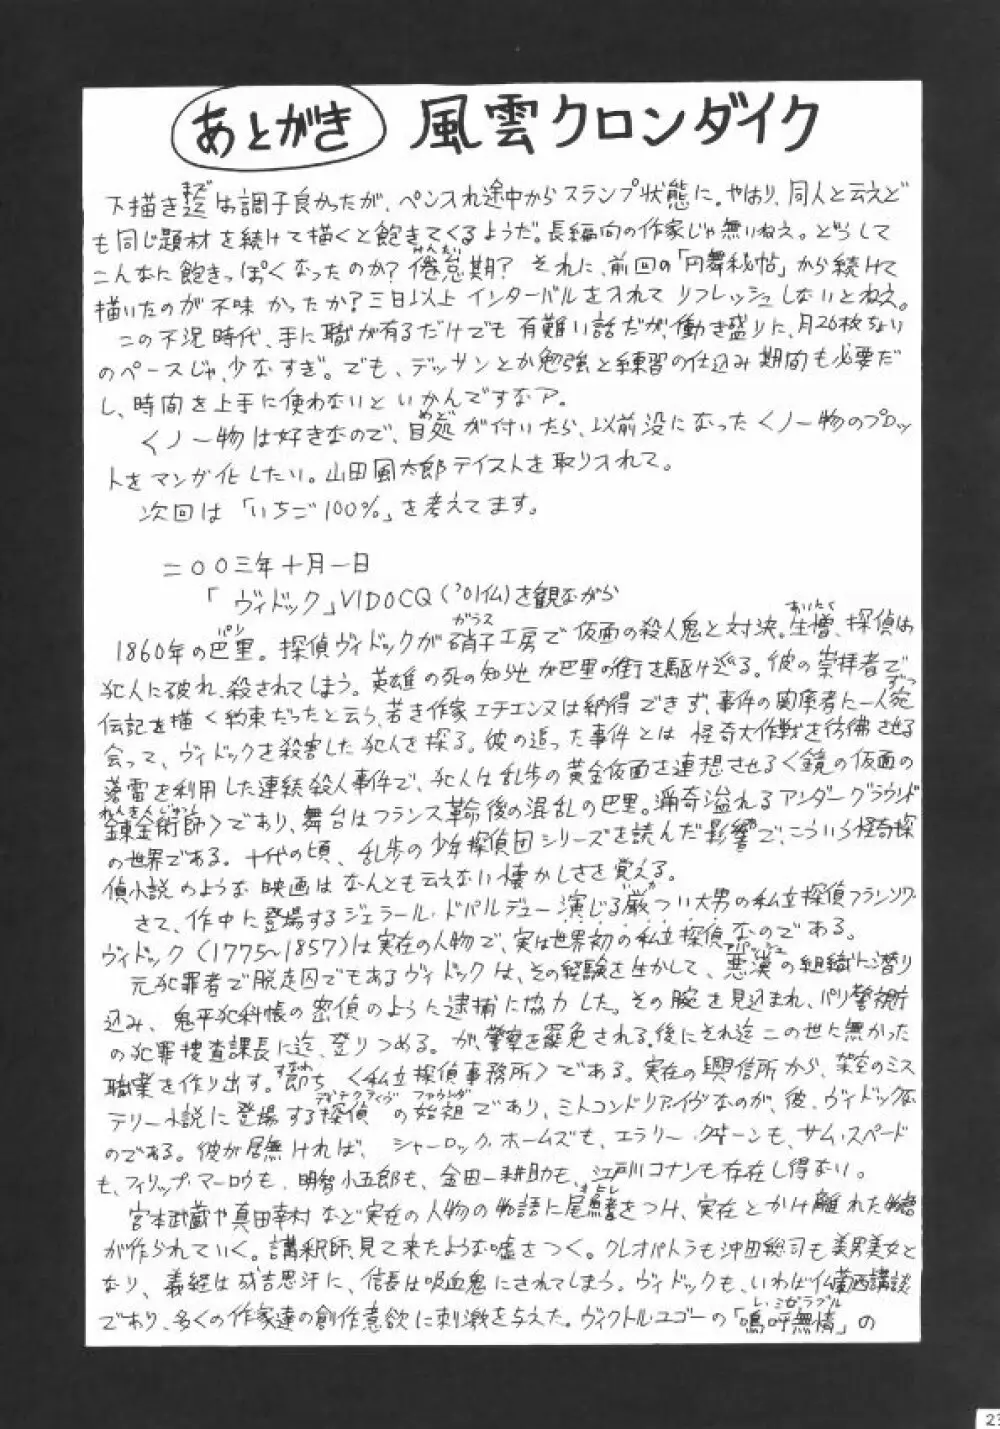 あとがき 風雲クロンダイク
下描き迄は調子良かったが、ペン入れ途中からスランプ状態に。やはり、同人と云えど
も同じ題材を続けて描くと飽きてくるようだ。長編向の作家じゃ無いねえ。どうして
こんなに飽きっぽくなったのか?倦怠期?それに、前回の「円舞秘帖」から続けて
描いたのが不味かったか?三日以上インターバルを入れてリフレッシュしないとねえ。
この不況時代、手に職が有るだけでも有難い話だが、働き盛りに、月20枚ちょい
のペースじゃ、少なすぎ。でも、デッサンとか勉強と練習の仕込み期間も必要だ
し、時間を上手に使わないといかんですなア。
くノ一物は好きなので、目処が付いたら、以前没になったくノ一物のプロッ
トをマンガ化したい。山田風太郎テイストを取り入れて。
次回は「いちご100%」を考えてます。
二〇〇三年十月一日
「ヴィドック」VIDOCQ('01仏)を観ながら
1860年の巴里。探偵ヴィドックが硝子工房で仮面の殺人鬼と対決。生憎、探偵は
犯人に破れ、殺されてしまう。英雄の死の知らせが巴里の街を駆け巡る。彼の崇拝者で
伝記を描く約束だったと云う、若き作家エチエンヌは納得できず、事件の関係者に一人宛
会って、ヴィドックを殺害した犯人を探る。彼の追った事件とは怪奇大作戦を彷彿させる
落雷を利用した連続殺人事件で、犯人は乱歩の黄金仮面を連想させる〈鏡の仮面の
錬金術師〉であり、舞台はフランス革命後の混乱の巴里。猟奇溢れるアンダーグラウンド
の世界である。十代の頃、乱歩の少年探偵団シリーズを読んだ影響で、こういう怪奇探
偵小説のような映画はなんとも云えない懐かしさを覚える。
さて、作中に登場するジェラール・ドパルデュー演じる厳つい大男の私立探偵フランソワ・
ヴィドック(1775~1857)は実在の人物で、実は世界初の私立探偵なのである。
元犯罪者で脱走囚でもあるヴィドックは、その経験を生かして、悪漢の組織に潜り
込み、鬼平犯科帳の密偵のように逮捕に協力した。その腕を見込まれ、パリ警視庁
の犯罪捜査課長に迄、登りつめる。が、警察を罷免される。後にそれ迄この世に無かった
職業を作り出す。即ち、〈私立探偵事務所〉である。実在の興信所から、架空のミス
テリー小説に登場する探偵の始祖であり、ミトコンドリア・イヴなのが、彼、ヴィドックな
のである。彼が居無ければ、シャーロック・ホームズも、エラリー・クイーンも、サム・スペード
も、フィリップ・マーロウも、明智小五郎も、金田一耕助も、江戸川コナンも存在し得ない。
宮本武蔵や真田幸村など実在の人物の物語に尾鰭をつけ、実在とかけ離れた物語
が作られていく。講釈師、見て来たような嘘をつく。クレオパトラも沖田総司も美男美女と
なり、義経は成吉思汗に、信長は吸血鬼にされてしまう。ヴィドックも、いわば仏蘭西講談
であり、多くの作家達の創作意欲に刺激を与えた。ヴィクトル・ユゴーの「嗚呼無情」の